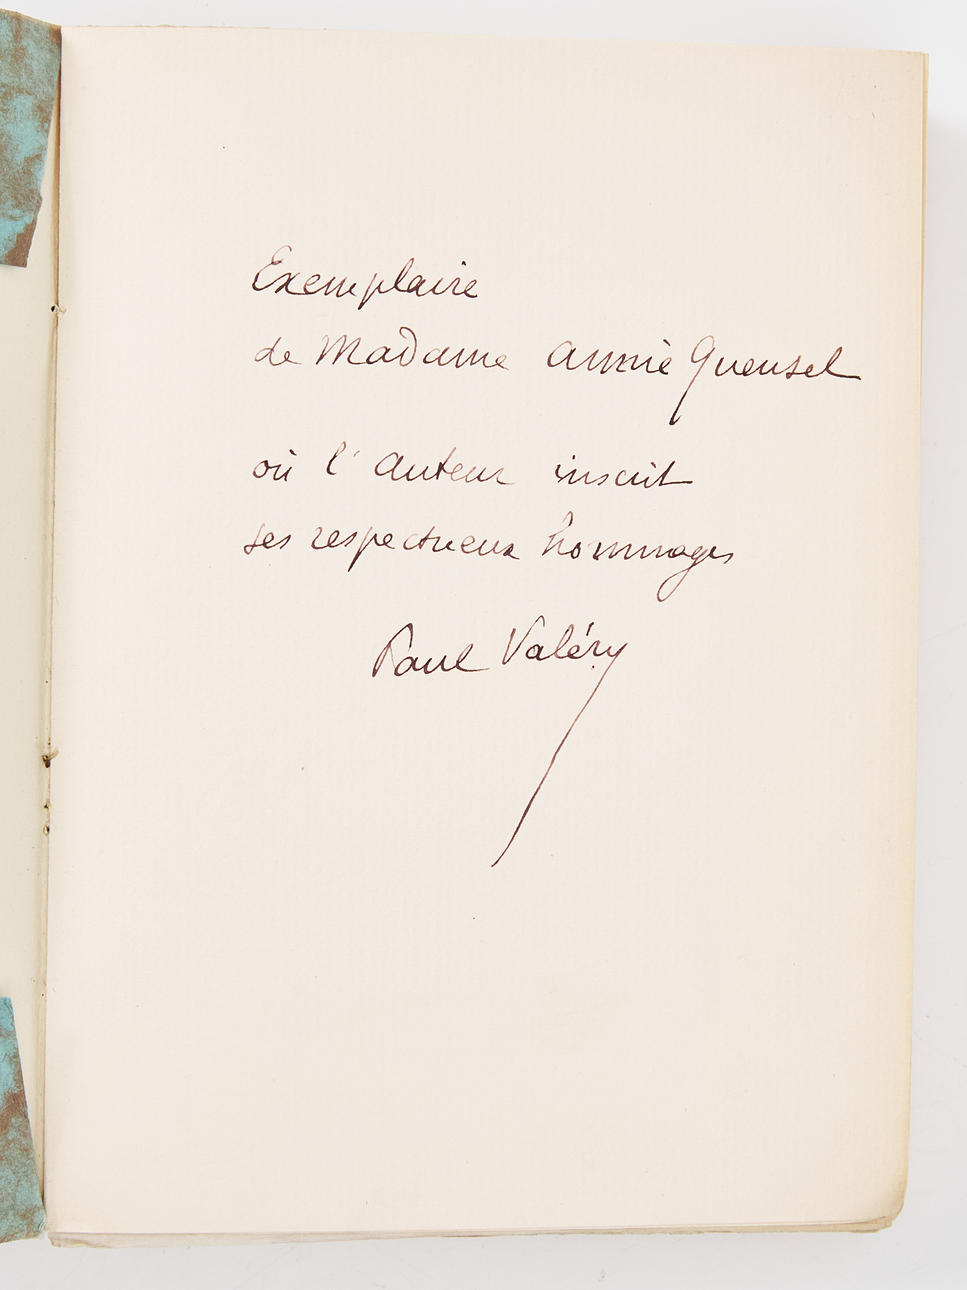 Exemplaire
de Madame Annie Queusel
où l'auteur inscrit
ses respectueux hommages
Paul Valéry